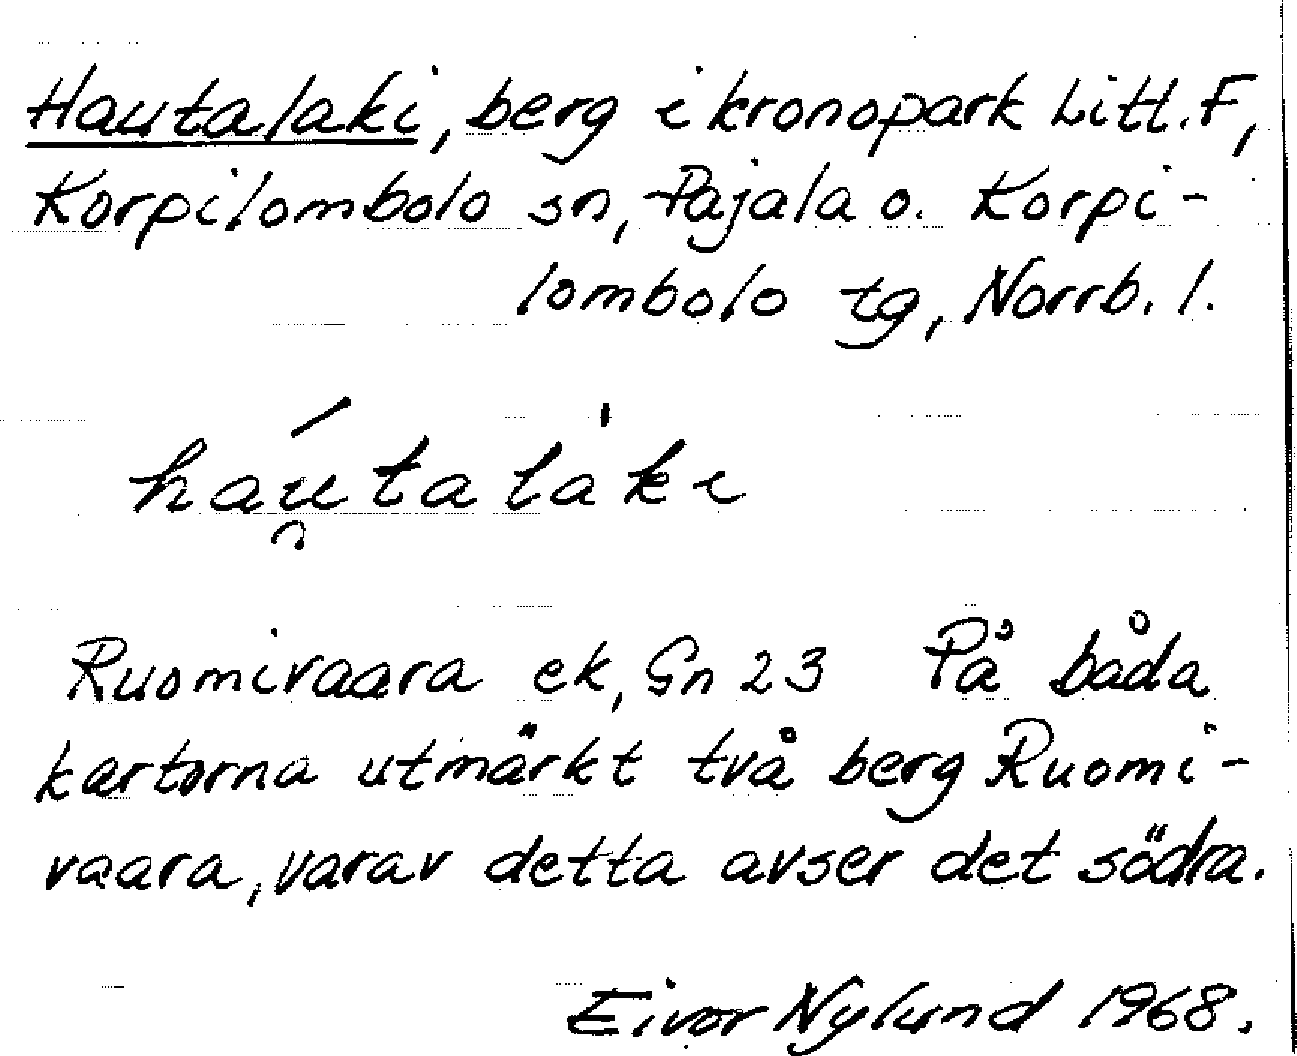 Hautalaki, berg i kronopark Litt. F,
Korpilombolo sn, Pajala o. Korpi-
lombolo tg, Norrb. l.
háu̯talàki
Ruomivaara ek, Gn 23 På båda
kartorna utmärkt två berg Ruomi-
vaara, varav detta avser det södra.
Eivor Nylund 1968.